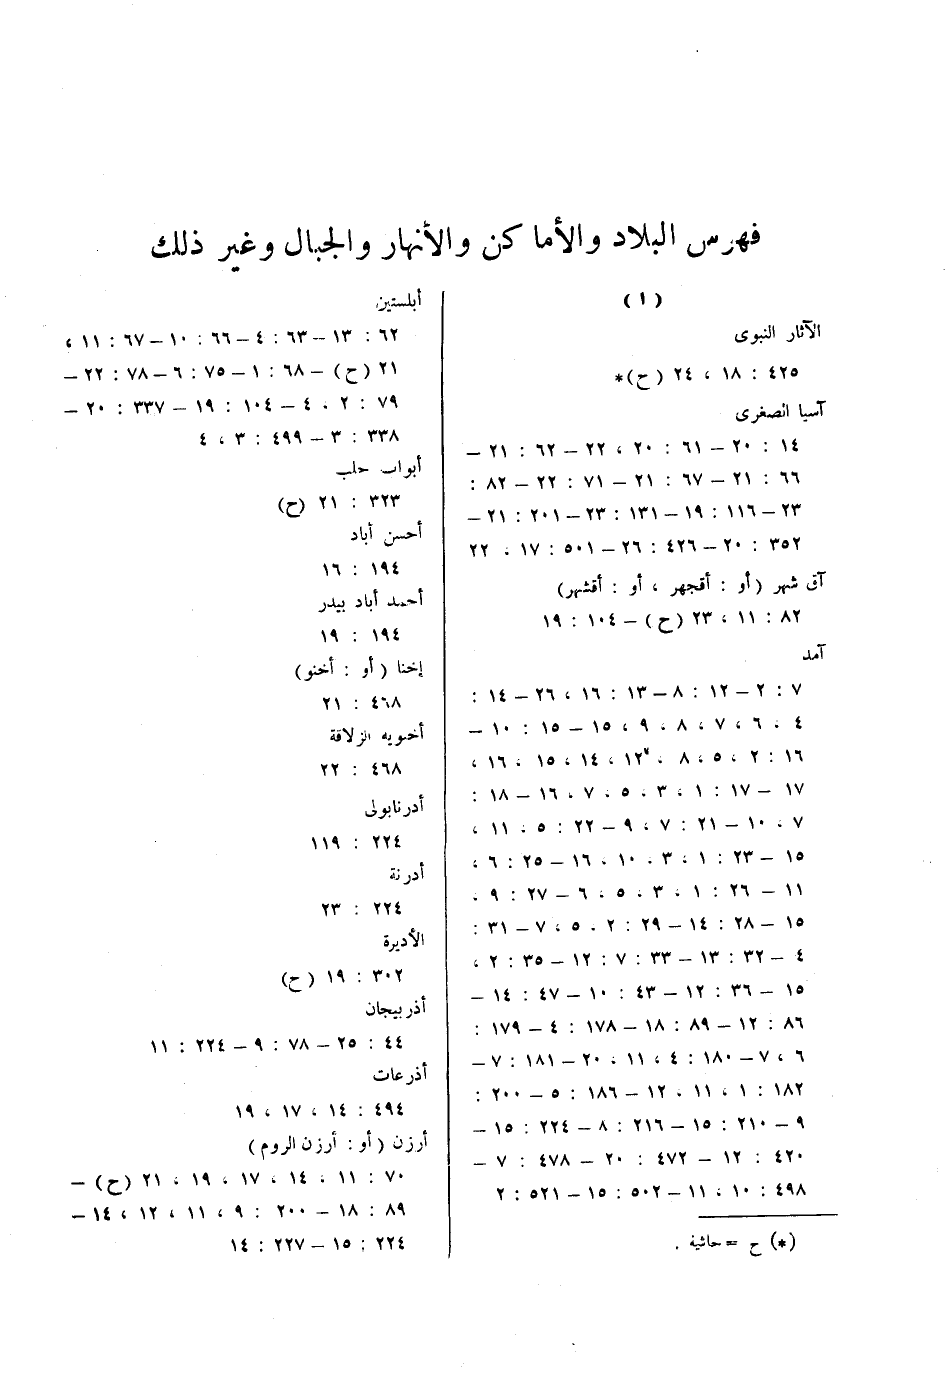 فهرس البلاد والأماكن والأنهار والجبال وغير ذلك
( ١ )
الآثار النبوى
٤٢٥ : ١٨ ، ٢٤ (ح)*
آسيا الصغرى
١٤ : ٢٠ – ٦١ : ٢٠ ، ٢٢ – ٦٢ : ٢١ –
٦٦ : ٢١ – ٦٧ : ٢١ – ٧١ : ٢٢ – ٨٢ :
٢٣ – ١١٦ : ١٩ – ١٣١ : ٢٣ – ٢٠١ : ٢١ –
٣٥٢ : ٢٠ – ٤٢٦ : ٢٦ – ٥٠١ : ١٧ ، ٢٢
آق شهر (أو : أقجهر ، أو : أقشهر)
٨٢ : ١١ ، ٢٣ (ح) – ١٠٤ : ١٩
آمد
٧ : ٢ – ١٢ : ٨ – ١٣ : ١٦ ، ٢٦ – ١٤ :
٤ ، ٦ ، ٧ ، ٨ ، ٩ ، ١٥ – ١٥ : ١٠ –
١٦ : ٢ ، ٥ ، ٨ ، ١٢ ، ١٤ ، ١٥ ، ١٦ ،
١٧ – ١٧ : ١ ، ٣ ، ٥ ، ٧ ، ١٦ – ١٨ :
٧ ، ١٠ – ٢١ : ٧ ، ٩ – ٢٢ : ٥ ، ١١ ،
١٥ – ٢٣ : ١ ، ٣ ، ١٠ ، ١٦ – ٢٥ : ٦ ،
١١ – ٢٦ : ١ ، ٣ ، ٥ ، ٦ – ٢٧ : ٩ ،
١٥ – ٢٨ : ١٤ – ٢٩ : ٢ ، ٥ ، ٧ – ٣١ :
٤ – ٣٢ : ١٣ – ٣٣ : ٧ : ١٢ – ٣٥ : ٢ ،
١٥ – ٣٦ : ١٢ – ٤٣ : ١٠ – ٤٧ : ١٤ –
٨٦ : ١٢ – ٨٩ : ١٨ – ١٧٨ : ٤ – ١٧٩ :
٦ ، ٧ – ١٨٠ : ٤ ، ١١ ، ٢٠ – ١٨١ : ٧ –
١٨٢ : ١ ، ١١ ، ١٢ – ١٨٦ : ٥ – ٢٠٠ :
٩ – ٢١٠ : ١٥ – ٢١٦ : ٨ – ٢٢٤ : ١٥ –
٤٢٠ : ١٢ – ٤٧٢ : ٢٠ – ٤٧٨ : ٧ –
٤٩٨ : ١٠ ، ١١ – ٥٠٢ : ١٥ – ٥٢١ : ٢
(*) ح = حاشية .
أبلستين
٦٢ : ١٣ – ٦٣ : ٤ – ٦٦ : ١٠ – ٦٧ : ١١ ،
٢١ (ح) – ٦٨ : ١ – ٧٥ : ٦ – ٧٨ : ٢٢ –
٧٩ : ٢ ، ٤ – ١٠٤ : ١٩ – ٣٣٧ : ٢٠ –
٣٣٨ : ٣ – ٤٩٩ : ٣ ، ٤
أبواب حلب
٣٢٣ : ٢١ (ح)
أحسن أباد
١٩٤ : ١٦
أحمد أباد بيدر
١٩٤ : ١٩
إخنا (أو : أخنو)
٤٦٨ : ٢١
أخنويه الزلاقة
٤٦٨ : ٢٢
أدرنابولى
٢٢٤ : ١١٩
أدرنة
٢٢٤ : ٢٣
الأديرة
٣٠٢ : ١٩ (ح)
أذربيجان
٤٤ : ٢٥ – ٧٨ : ٩ – ٢٢٤ : ١١
أذرعات
٤٩٤ : ١٤ ، ١٧ ، ١٩
أرزن (أو : أرزن الروم)
٧٠ : ١١ ، ١٤ ، ١٧ ، ١٩ ، ٢١ (ح) –
٨٩ : ١٨ – ٢٠٠ : ٩ ، ١١ ، ١٢ ، ١٤ –
٢٢٤ : ١٥ – ٢٢٧ : ١٤